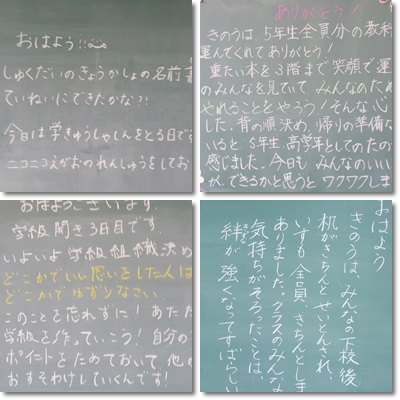 おはよう!!
しゅくだいのきょうかしょの名前書
ていねいにできたかな?!
今日は学きゅうしゃしんをとる日です
ニコニコえがおのれんしゅうをしてお
ありがとう!
きのうは、5年生全員分の教科
運んでくれてありがとう!
重たい本を3階まで笑顔で運
のみんなを見ていて、みんなのため
やれることをやろう!そんな心
した。背の順決め、帰りの準備な
いると、5年生、高学年としてのたの
感じました。今日も、みんなのいい
が、できるかと思うとワクワクしま
おはようございます。
学級開き3日目です。
いよいよ学級組織決め
どこかでいい思いをした人は
どこかでゆずりなさい。
このことを忘れずに!あたた
学級を作っていこう!自分の
ポイントをためておいて、他の
おすそわけしていくんです!
おはよう
きのうは、みんなの下校後
机がきちんとせいとんされ、
いすも全員、きちんとしま
ありました。クラスのみんな
気持ちがそろったことは、
絆が強くなってすばらしい